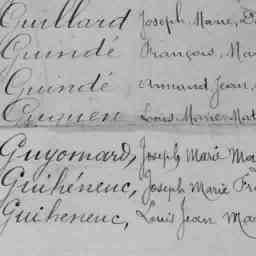 Guillard Joseph Marie,
Guindé François, Ma
Guindé Armand Jean,
Guiguen Louis Marie Mat
Guyomard, Joseph Marie Ma
Guihéneuc, Joseph Marie Fr
Guiheneuc, Louis Jean Ma